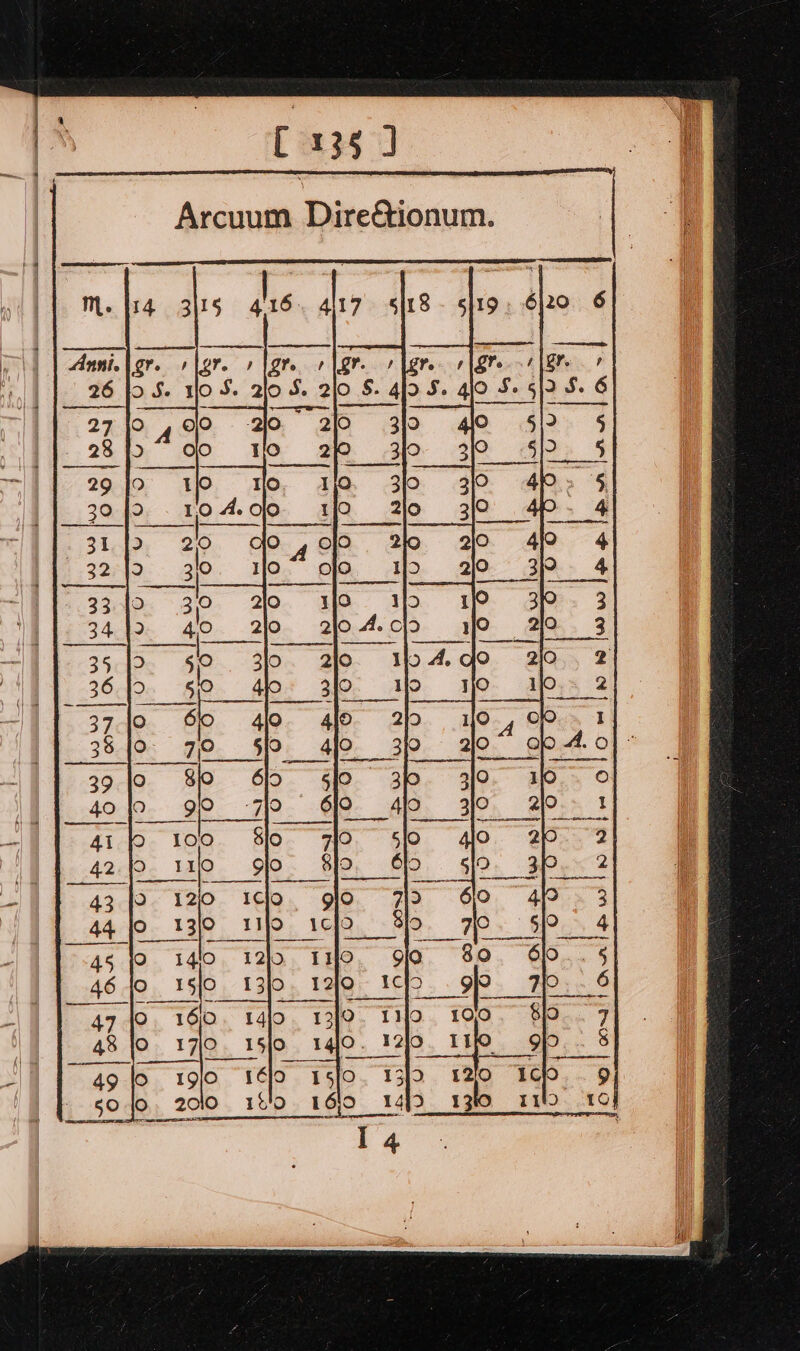 [ 135 ]
Arcuum Directionum.
m. | 14 3 | 15 4 | 16 4 | 17 5 | 18 5 | 19 6 | 20 6
Anni. | gr. ′ | gr. ′ | gr. ′ | gr. ′ | gr. ′ | gr. ′ | gr. ′
26 | 0 S. 1 | 0 S. 2 | 0 S. 2 | 0 S. 4 | 0 S. 4 | 0 S. 5 | 0 S. 6
27 | 0 A 0 | 0 2 | 0 2 | 0 3 | 0 4 | 0 5 | 0 5
28 | 0 0 | 0 1 | 0 2 | 0 3 | 0 3 | 0 5 | 0 5
29 | 0 1 | 0 1 | 0 1 | 0 3 | 0 3 | 0 4 | 0 5
30 | 0 1 | 0 A. 0 | 0 1 | 0 2 | 0 3 | 0 4 | 0 4
31 | 0 2 | 0 0 | 0 A 0 | 0 2 | 0 2 | 0 4 | 0 4
32 | 0 3 | 0 1 | 0 0 | 0 1 | 0 2 | 0 3 | 0 4
33 | 0 3 | 0 2 | 0 1 | 0 1 | 0 1 | 0 3 | 0 3
34 | 0 4 | 0 2 | 0 2 | 0 A. 0 | 0 1 | 0 2 | 0 3
35 | 0 5 | 0 3 | 0 2 | 0 1 | 0 A. 0 | 0 2 | 0 2
36 | 0 5 | 0 4 | 0 3 | 0 1 | 0 1 | 0 1 | 0 2
37 | 0 6 | 0 4 | 0 4 | 0 2 | 0 1 | 0 A 0 | 0 1
38 | 0 7 | 0 5 | 0 4 | 0 3 | 0 2 | 0 0 | 0 A. 0
39 | 0 8 | 0 6 | 0 5 | 0 3 | 0 3 | 0 1 | 0 0
40 | 0 9 | 0 7 | 0 6 | 0 4 | 0 3 | 0 2 | 0 1
41 | 0 10 | 0 8 | 0 7 | 0 5 | 0 4 | 0 2 | 0 2
42 | 0 11 | 0 9 | 0 8 | 0 6 | 0 5 | 0 3 | 0 2
43 | 0 12 | 0 10 | 0 9 | 0 7 | 0 6 | 0 4 | 0 3
44 | 0 13 | 0 11 | 0 10 | 0 8 | 0 7 | 0 5 | 0 4
45 | 0 14 | 0 12 | 0 11 | 0 9 | 0 8 | 0 6 | 0 5
46 | 0 15 | 0 13 | 0 12 | 0 10 | 0 9 | 0 7 | 0 6
47 | 0 16 | 0 14 | 0 13 | 0 11 | 0 10 | 0 8 | 0 7
48 | 0 17 | 0 15 | 0 14 | 0 12 | 0 11 | 0 9 | 0 8
49 | 0 19 | 0 16 | 0 15 | 0 13 | 0 12 | 0 10 | 0 9
50 | 0 20 | 0 18 | 0 16 | 0 14 | 0 13 | 0 11 | 0 10
I 4